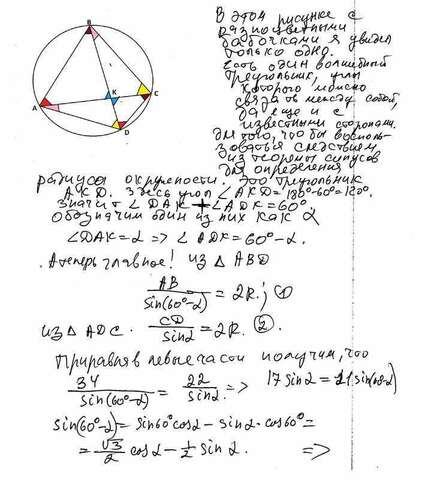 В этом рисунке с
разноцветными
бабочками я увидел
только одно.
Есть один волшебный
треугольник, углы
которого можно
связать между собой,
да еще и с
известными сторонами.
Для того, что бы восполь-
зоваться следствием
из теоремы синусов
для определения
радиуса окружности. Это треугольник
AKD. Здесь угол ∠AKD=180°-60°=120°.
Значит ∠DAK+∠ADK=60°.
Обозначим один из них как α
∠DAK=α => ∠ADK=60°-α.
А теперь главное! из △ABD
AB/sin(60°-α) = 2R; ①
из △ADC. CD/sinα = 2R. ②
Приравняв левые части получим, что
34/sin(60°-α) = 22/sinα => 17sinα=11sin(60°-α)
sin(60°-α)=sin60°cosα-sinα·cos60°=
=√3/2 cosα-1/2 sinα. =>
B
A
K
C
D